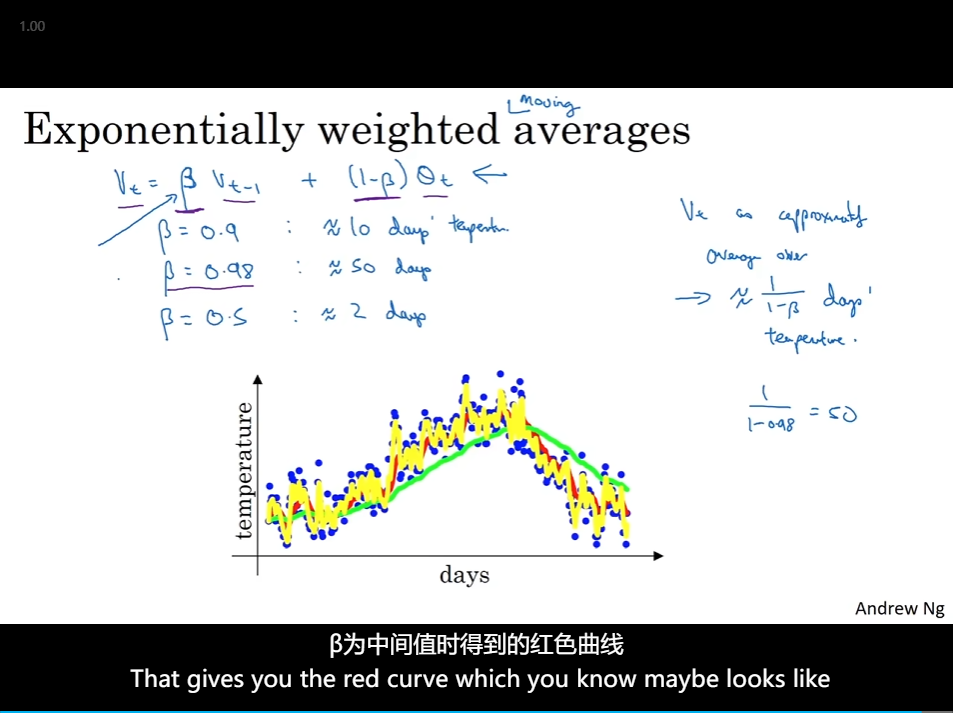 1.00
moving
Exponentially weighted averages
Vt = β Vt-1 + (1-β) θt ←
β = 0.9 : ≈ 10 days' temperature
β = 0.98 : ≈ 50 days
β = 0.5 : ≈ 2 days
Vt as approximately
average over
→ ≈ 1/(1-β) days'
temperature.
1/(1-0.98) = 50
temperature
days
Andrew Ng
β为中间值时得到的红色曲线
That gives you the red curve which you know maybe looks like